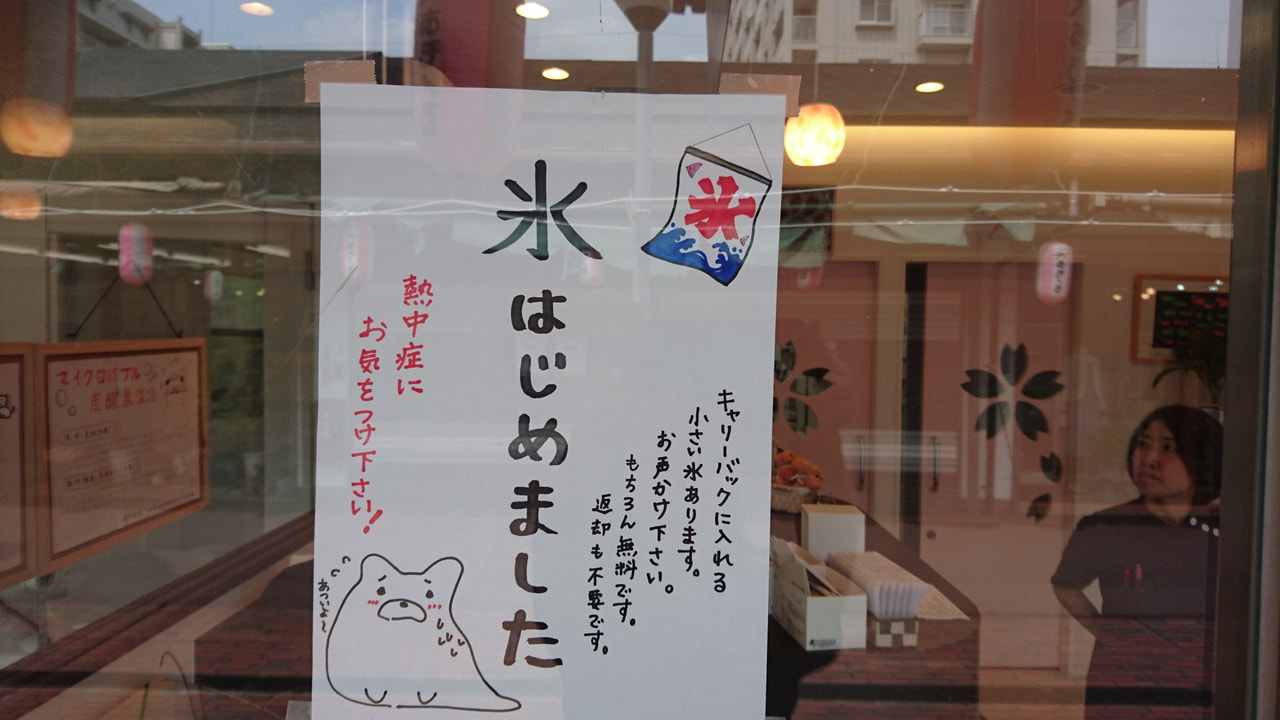 氷
氷はじめました
キャリーバックに入れる
小さい氷あります。
お声かけ下さい。
もちろん無料です。
返却も不要です。
熱中症に
お気をつけ下さい!
あついよ〜
マイクロバブル
炭酸泉温浴